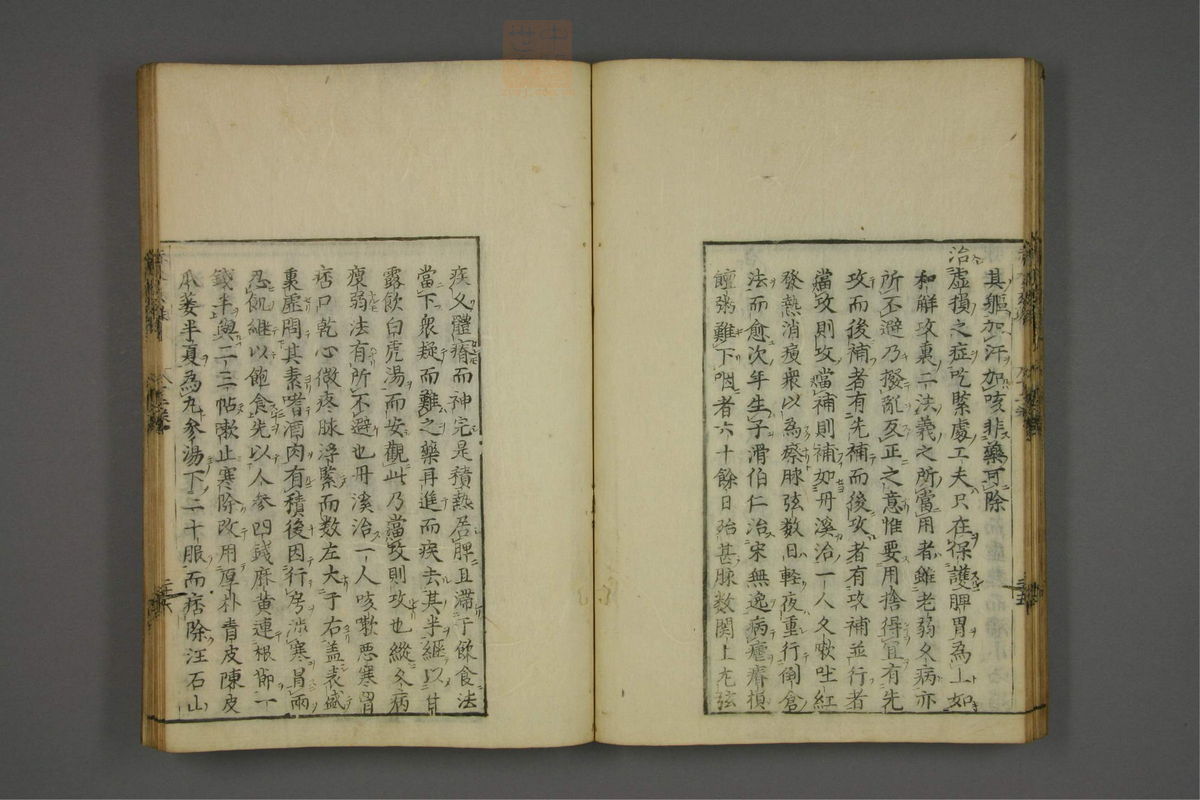 其軀加汗加咳非藥可除
治虛損之症吃緊處工夫只在保護脾胃為上如
和解攻裏二法義之所當用者雖老弱久病亦
所不避乃撥亂反正之意惟要用捨得宜有先
攻而後補者有先補而後攻者有攻補並行者
當攻則攻當補則補如丹溪治一人久嗽吐紅
發熱消瘦衆以為瘵脉弦数日輕夜重行倒倉
法而愈次年生子滑伯仁治宋無逸病瘧瘠損
饘粥難下咽者六十餘日殆甚脉数関上尤弦
疾久體瘠而神完是積熱居脾且滯于飲食法
當下衆疑而難之藥再進而疾去其半繼以甘
露飲白虎湯而安觀此乃當攻則攻也縱久病
瘦弱法有所不避也丹溪治一人咳嗽悪寒胃
痞口乾心微疼脉浮緊而数左大于右盖表盛
裏虛問其素嗜酒肉有積後因行房渉寒冒雨
忍飢繼以飽食先以人参四錢麻黄連根節一
錢半與二三帖嗽止寒除改用厚朴青皮陳皮
瓜蔞半夏為丸参湯下二十服而痞除汪石山